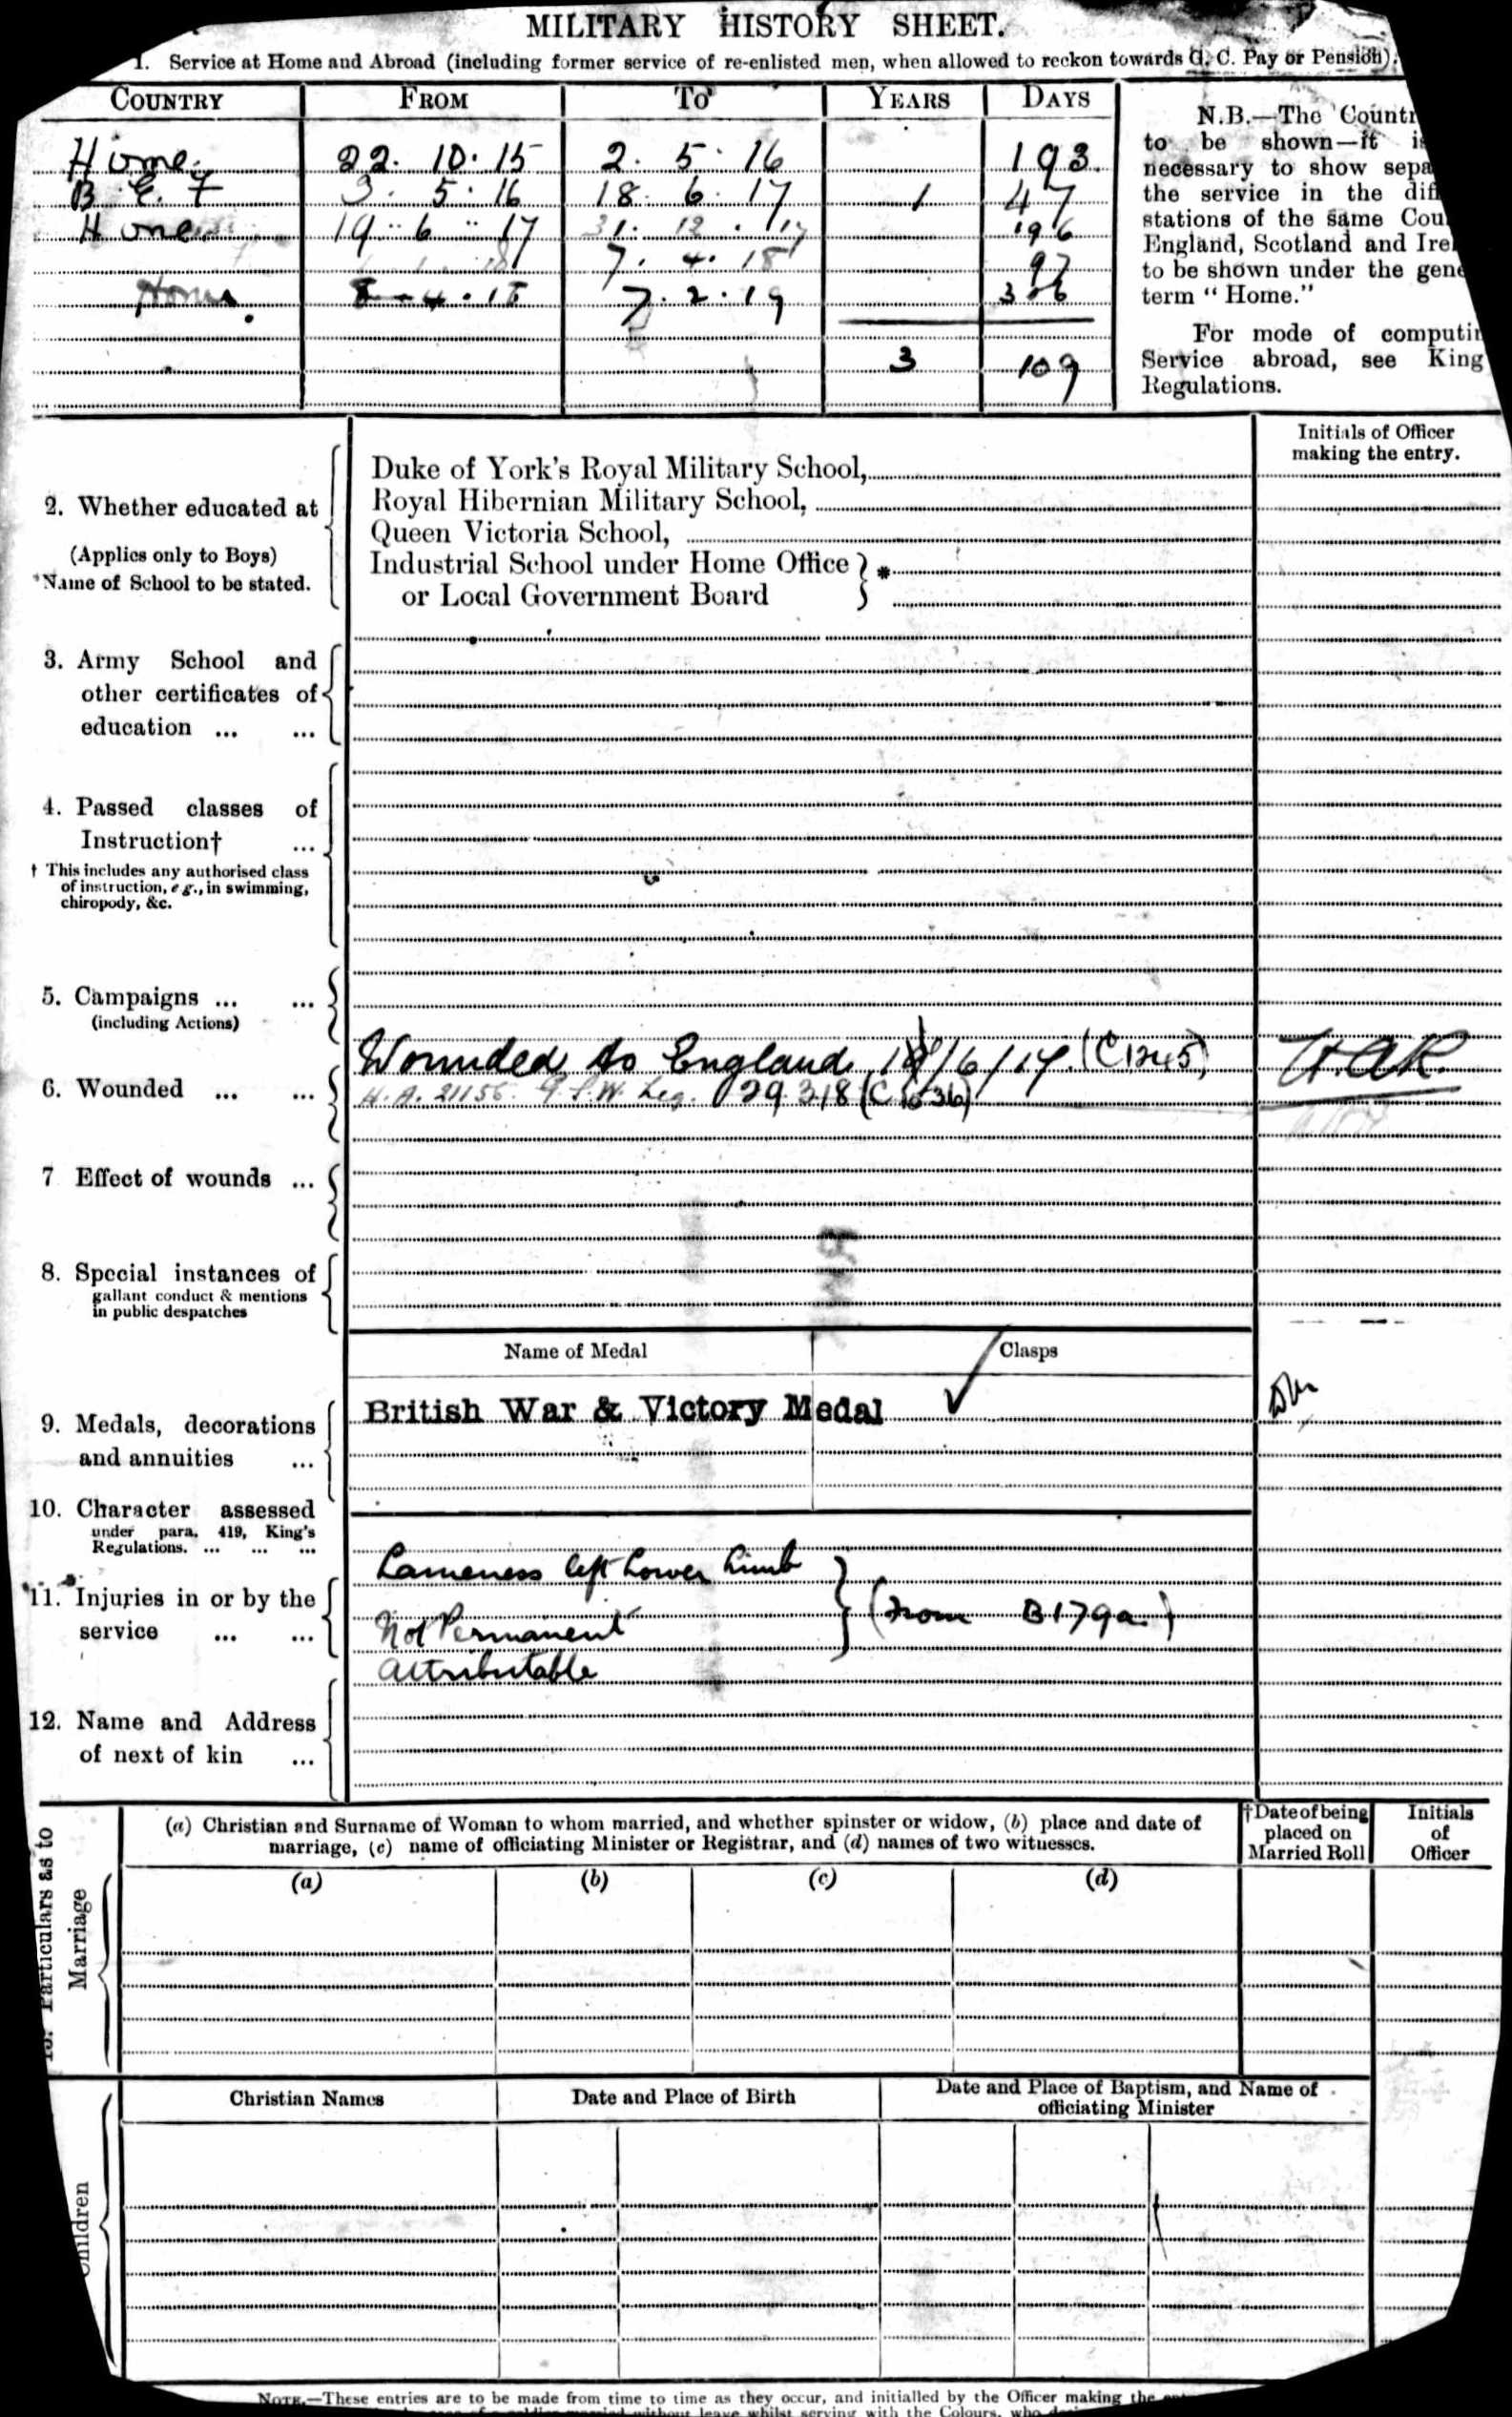 MILITARY HISTORY SHEET.
1. Service at Home and Abroad (including former service of re-enlisted men, when allowed to reckon towards G. C. Pay or Pension).
COUNTRY FROM TO YEARS DAYS
Home. 22. 10. 15 2. 5. 16 193.
B. E. F 3. 5. 16 18. 6. 17 1 47
Home. 19. 6. 17 31. 12. 17 196
18 7. 4. 18 97
Home 8-4.18 7.2.19 306
3 109
N.B.—The Countr
to be shown—it is
necessary to show sepa
the service in the diff
stations of the same Cou
England, Scotland and Ire
to be shown under the gene
term "Home."
For mode of computin
Service abroad, see King
Regulations.
Initials of Officer
making the entry.
2. Whether educated at
(Applies only to Boys)
*Name of School to be stated.
Duke of York's Royal Military School,
Royal Hibernian Military School,
Queen Victoria School,
Industrial School under Home Office } *
or Local Government Board
3. Army School and
other certificates of
education ... ...
4. Passed classes of
Instruction† ...
† This includes any authorised class
of instruction, e g., in swimming,
chiropody, &c.
5. Campaigns ... ...
(including Actions)
6. Wounded ... ...
Wounded to England 18/6/17. (C1245) H.A.R.
H.A. 21155. G.S.W. Leg. 29.3.18
7 Effect of wounds ...
8. Special instances of
gallant conduct & mentions
in public despatches
Name of Medal Clasps
9. Medals, decorations
and annuities ...
British War & Victory Medal
10. Character assessed
under para. 419, King's
Regulations. ... ... ...
11. Injuries in or by the
service ... ...
Lameness left Lower Limb
Not Permanent } (From B179a.)
Attributable
12. Name and Address
of next of kin ...
13. Particulars as to
Marriage
(a) Christian and Surname of Woman to whom married, and whether spinster or widow, (b) place and date of
marriage, (c) name of officiating Minister or Registrar, and (d) names of two witnesses.
†Date of being
placed on
Married Roll
Initials
of
Officer
(a) (b) (c) (d)
Children
Christian Names Date and Place of Birth Date and Place of Baptism, and Name of
officiating Minister
NOTE.—These entries are to be made from time to time as they occur, and initialled by the Officer making the
married without leave whilst serving with the Colours, who